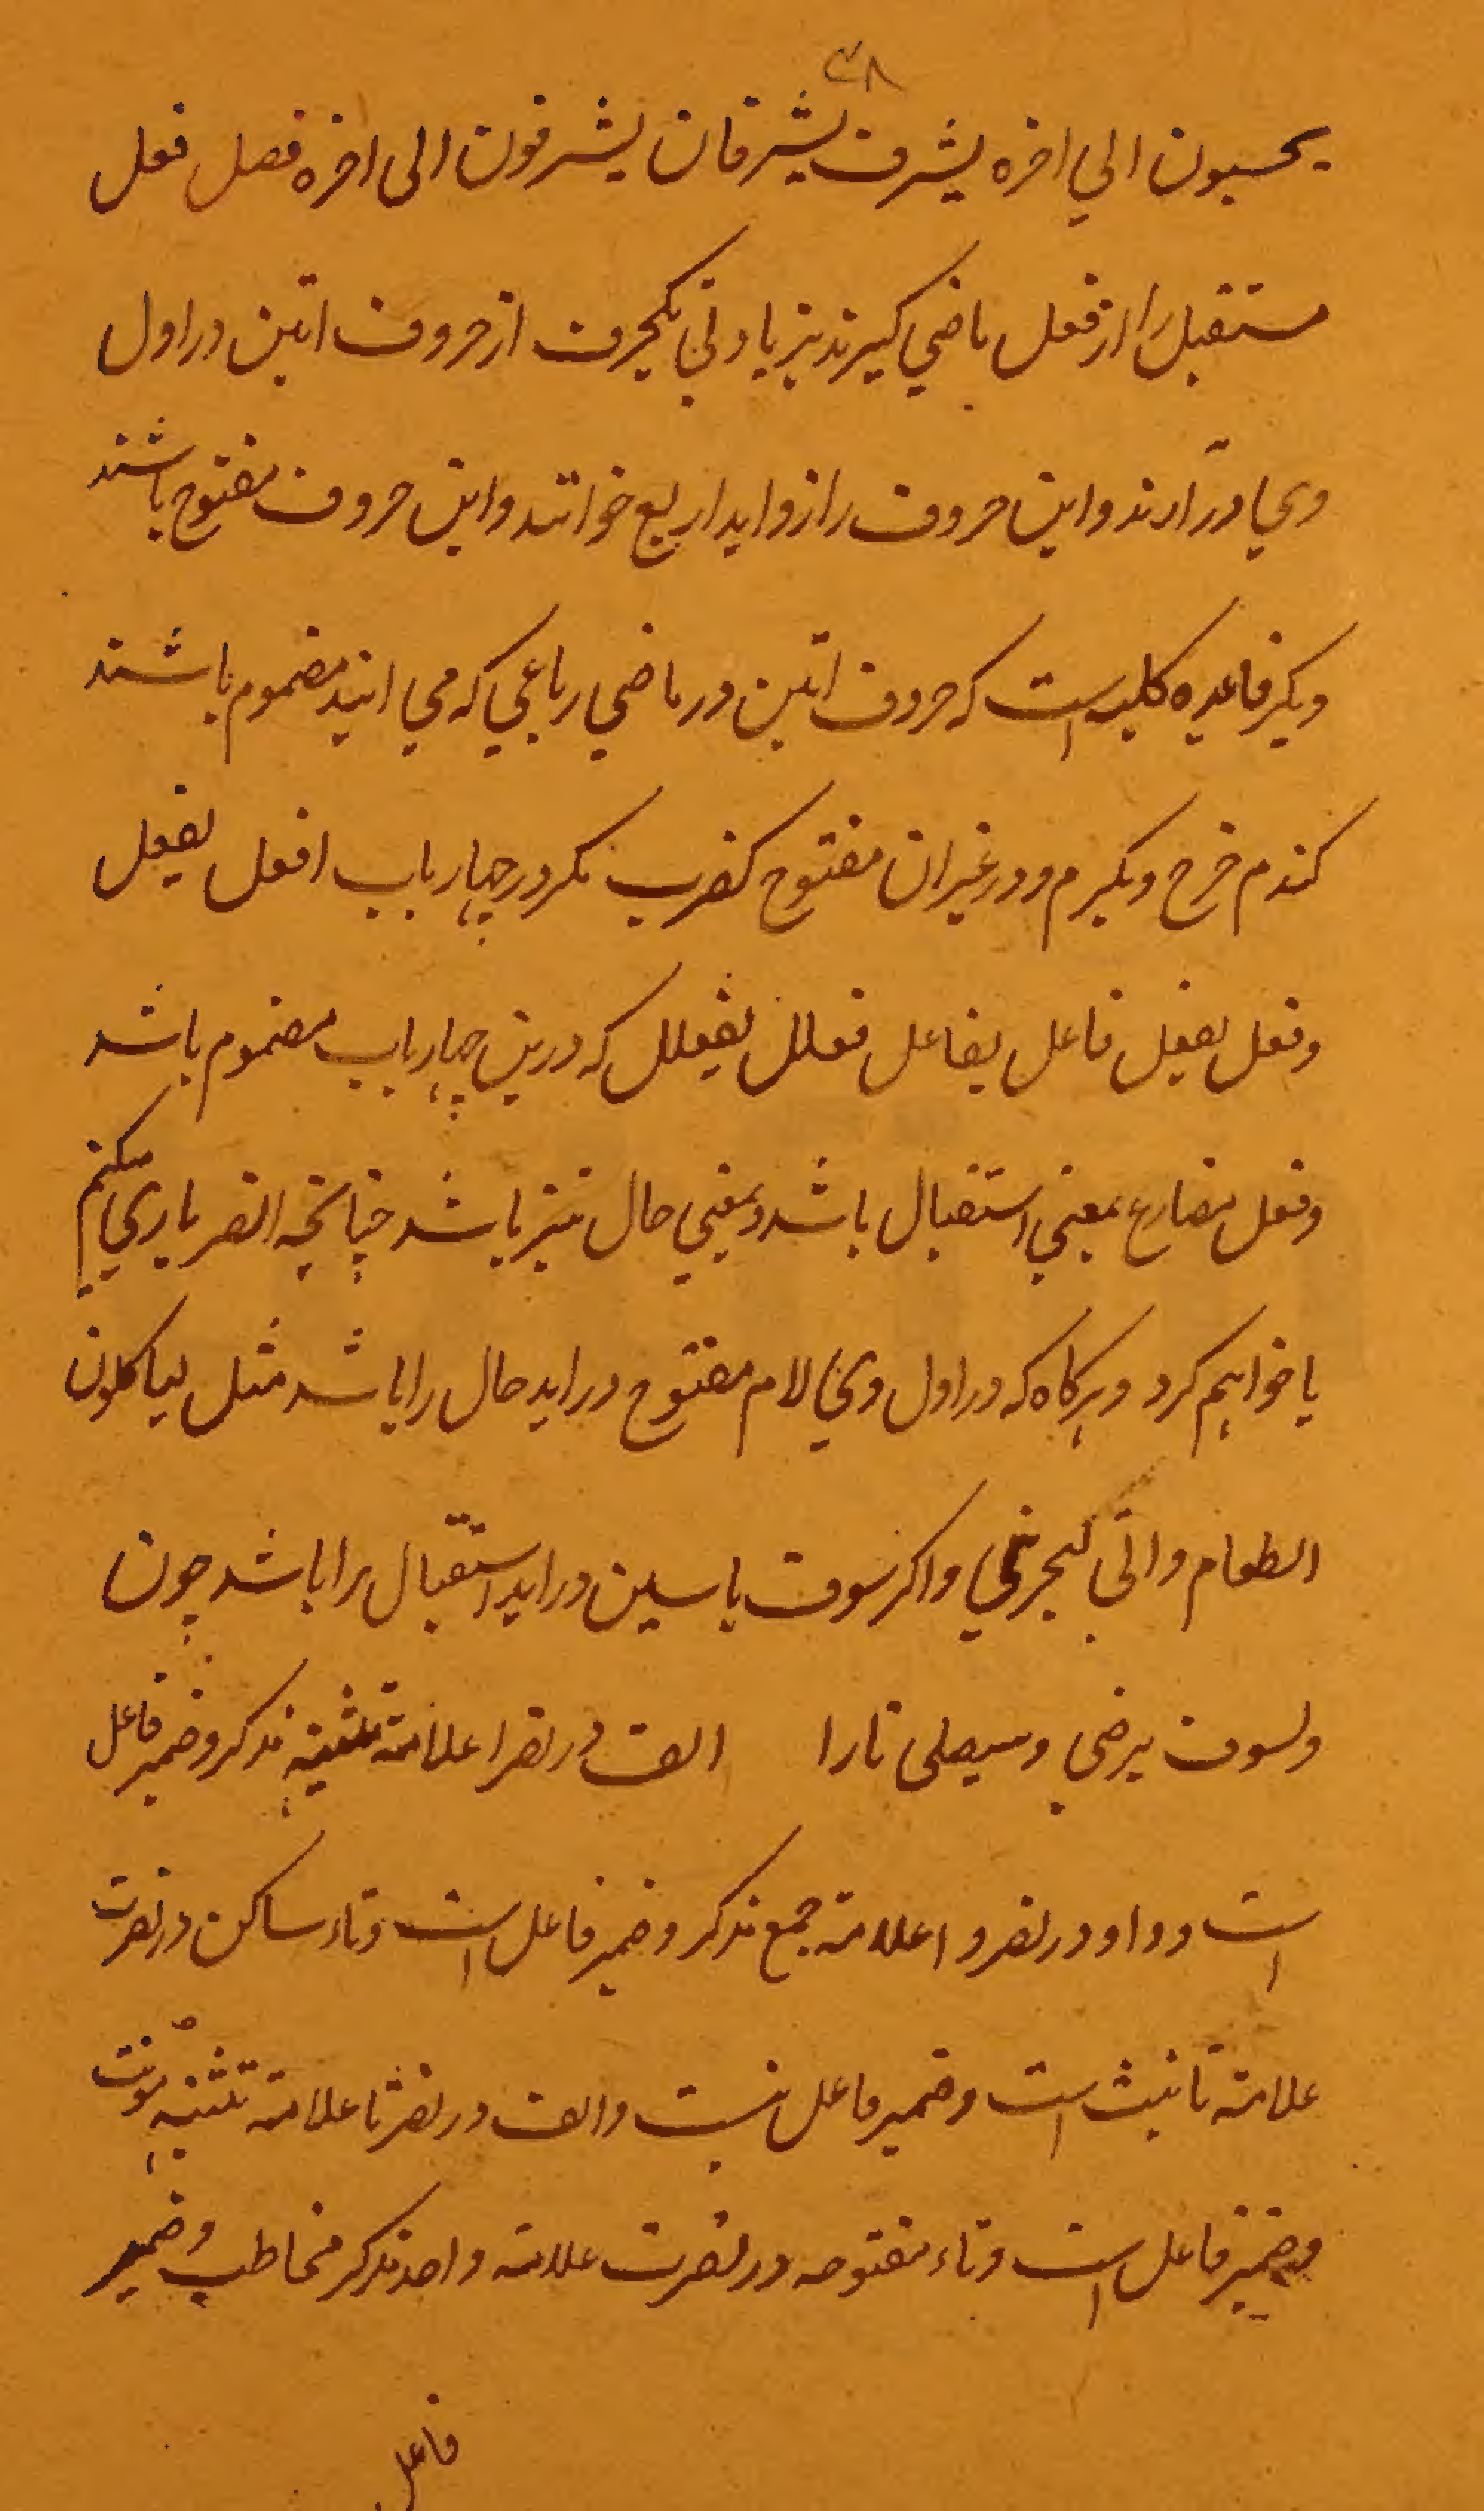 ۳۸
یحسبون الي اخره یشرف یشرفان یشرفون الی اخره فصل فعل
مستقبل را از فعل ماضي کیرند بزیادتي یکحرف از حروف اتین در اول
وي درآرند و این حروف را زواید اربع خوانند و این حروف مفتوح باشند
دیکر قاعده کلیه است که حروف اتین در ماضي رباعي که مي ایند مضموم باشند
کندحرج ویکرم و در غیر ان مفتوح کنصرب مکر در چهار باب افعل یفعل
و فعل یفعل فاعل یفاعل فعلل یفعلل که درین چهار باب مضموم باشد
و فعل مضارع بمعني استقبال باشد و بمعني حال نیز باشد چنانچه انصر یاري میکنم
یا خواهم کرد و هرکاه که در اول وي لام مفتوح در اید حال را باشد مثل لیاکلون
الطعام و اني لیحزنني و اکر سوف یا سین در اید استقبال را باشد چون
ولسوف یرضي وسیصلی نارا الف در نصرا علامة تثنیه مذکر و ضمیر فاعل
است و واو در نصروا علامة جمع مذکر و ضمیر فاعل است و تاء ساکن در نصرت
علامة تانیث است و ضمیر فاعل نیست و الف در نصرتا علامة تثنیه مونث
وضمیر فاعل است و تاء مفتوحه در نصرت علامة واحد مذکر مخاطب و ضمیر
فاعل